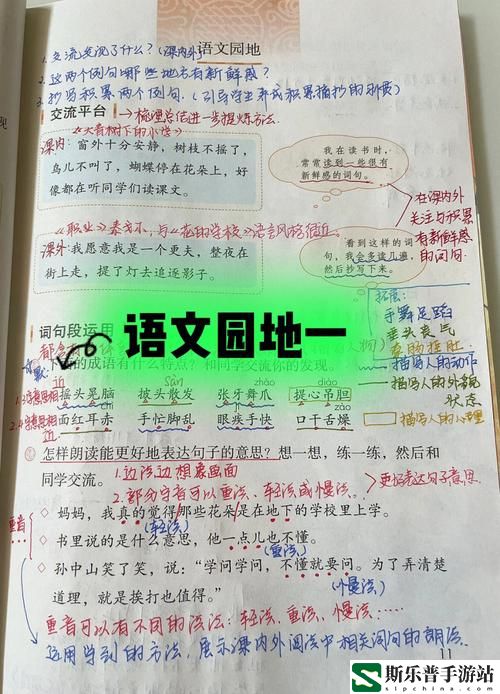 语文园地
1. 交流发现了什么？(课内外)
2. 这两个例句哪些地方有新鲜感？
3. 抄写积累两个例句。(引导学生养成积累摘抄的
交流平台
→梳理总结进一步提炼方法.
《大青树下的小学》
课内：窗外十分安静，树枝不摇了，
鸟儿不叫了，蝴蝶停在花朵上，好
像都在听同学们读课文。
我在读书时，
常常读到一些很有
新鲜感的词句。
在课内外
关注与积累
有新鲜感
的词句
《职业》泰戈尔，与《花的学校》语言风格很近。
课外：我愿意我是一个更夫，整夜在
街上走，提了灯去追逐影子。
看到这样的词
句，我会多读几遍，
然后抄写下来。
拓展：
手舞足蹈
垂头丧气
语文园地一
词句段运用
的成语有什么特点？和同学交流你的发现。
描写人的动作
描写人的外貌
状态
描写人的心理
sān
zhǎo
dǎn
摇头晃脑 披头散发 张牙舞爪 提心吊胆
面红耳赤 手忙脚乱 眼疾手快 口干舌燥
怎样朗读能更好地表达句子的意思？想一想，练一练，然后和
同学交流。
1. 边读边想象画面
2. 部分字音可以重读、轻读或慢读。
更好表达句子意思.
重音
妈妈，我真的觉得那些花朵是在地下的学校里上学。
(轻读)
书里说的是什么意思，他一点儿也不懂。
(重读)
孙中山笑了笑，说：“学问学问，不懂就要问。为了弄清楚
道理，就是挨打也值得。”
(慢读)
重音可以有不同的读法：轻读、重读、慢读……
运用学到的方法，展示课内外阅读中相关词句的朗读.
11
斯乐普手游站
slpchina.com